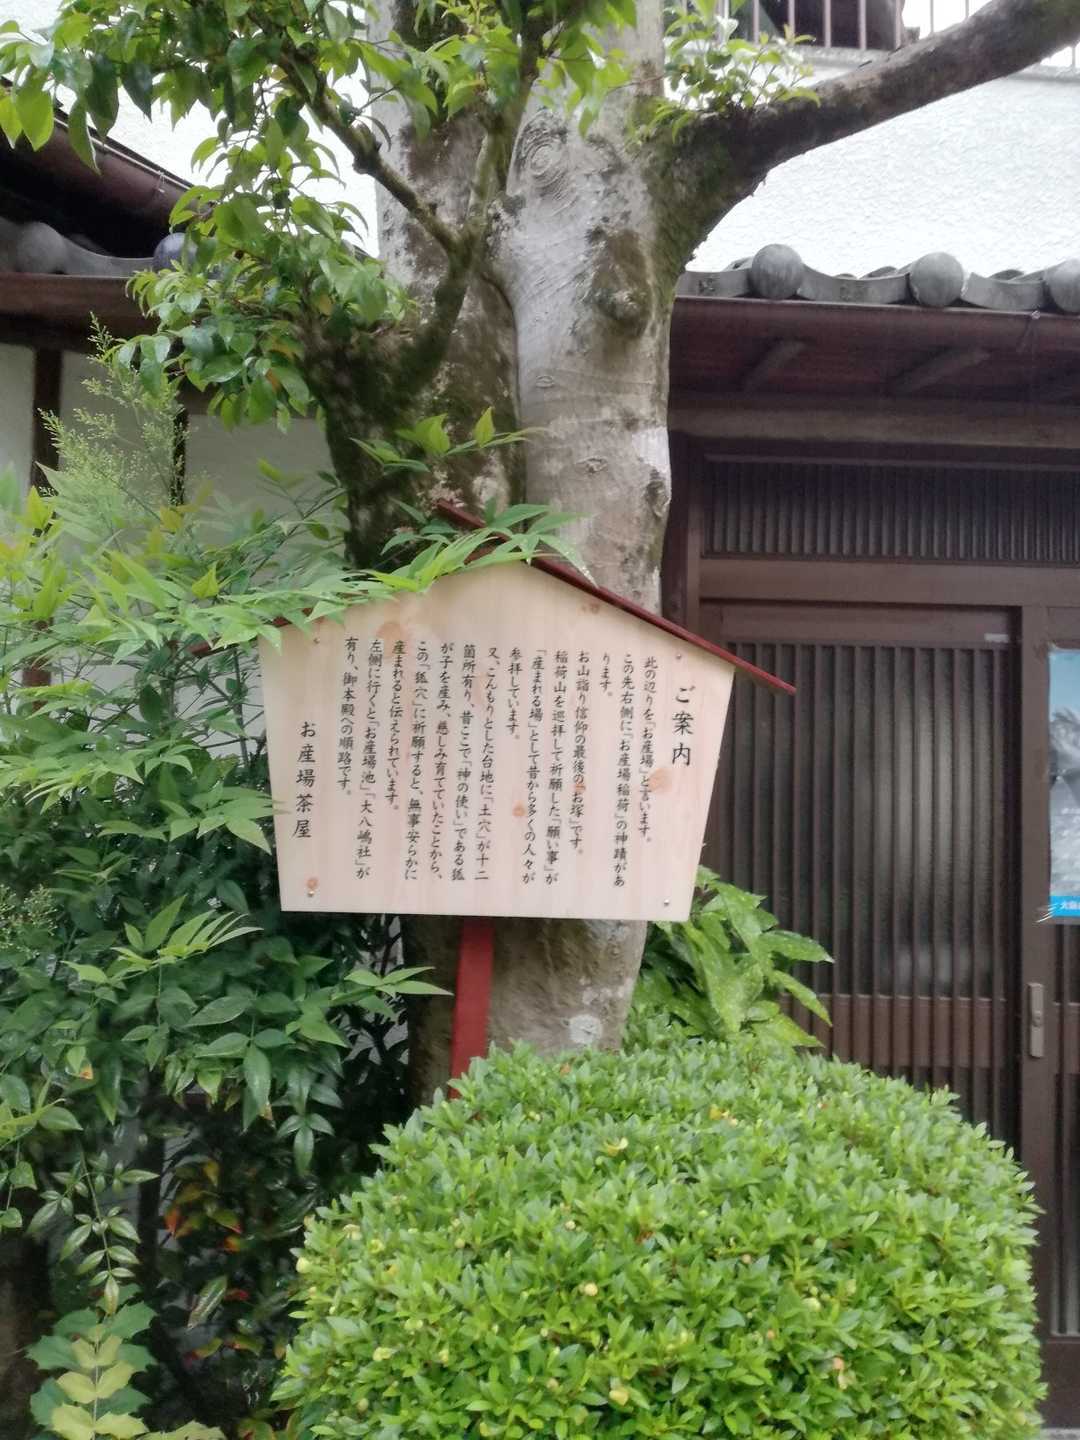 ご案内
此の辺りを「お産場」と言います。
この先右側に「お産場稲荷」の神蹟があ
ります。
お山詣り信仰の最後の「お塚」です。
稲荷山を巡拝して祈願した「願い事」が
「産まれる場」として昔から多くの人々が
参拝しています。
又、こんもりとした台地に「土穴」が十二
箇所有り、昔ここで「神の使い」である狐
が子を産み、慈しみ育てていたことから、
この「狐穴」に祈願すると、無事安らかに
産まれると伝えられています。
左側に行くと「お産場池」「大八嶋社」が
有り、御本殿への順路です。
お産場茶屋